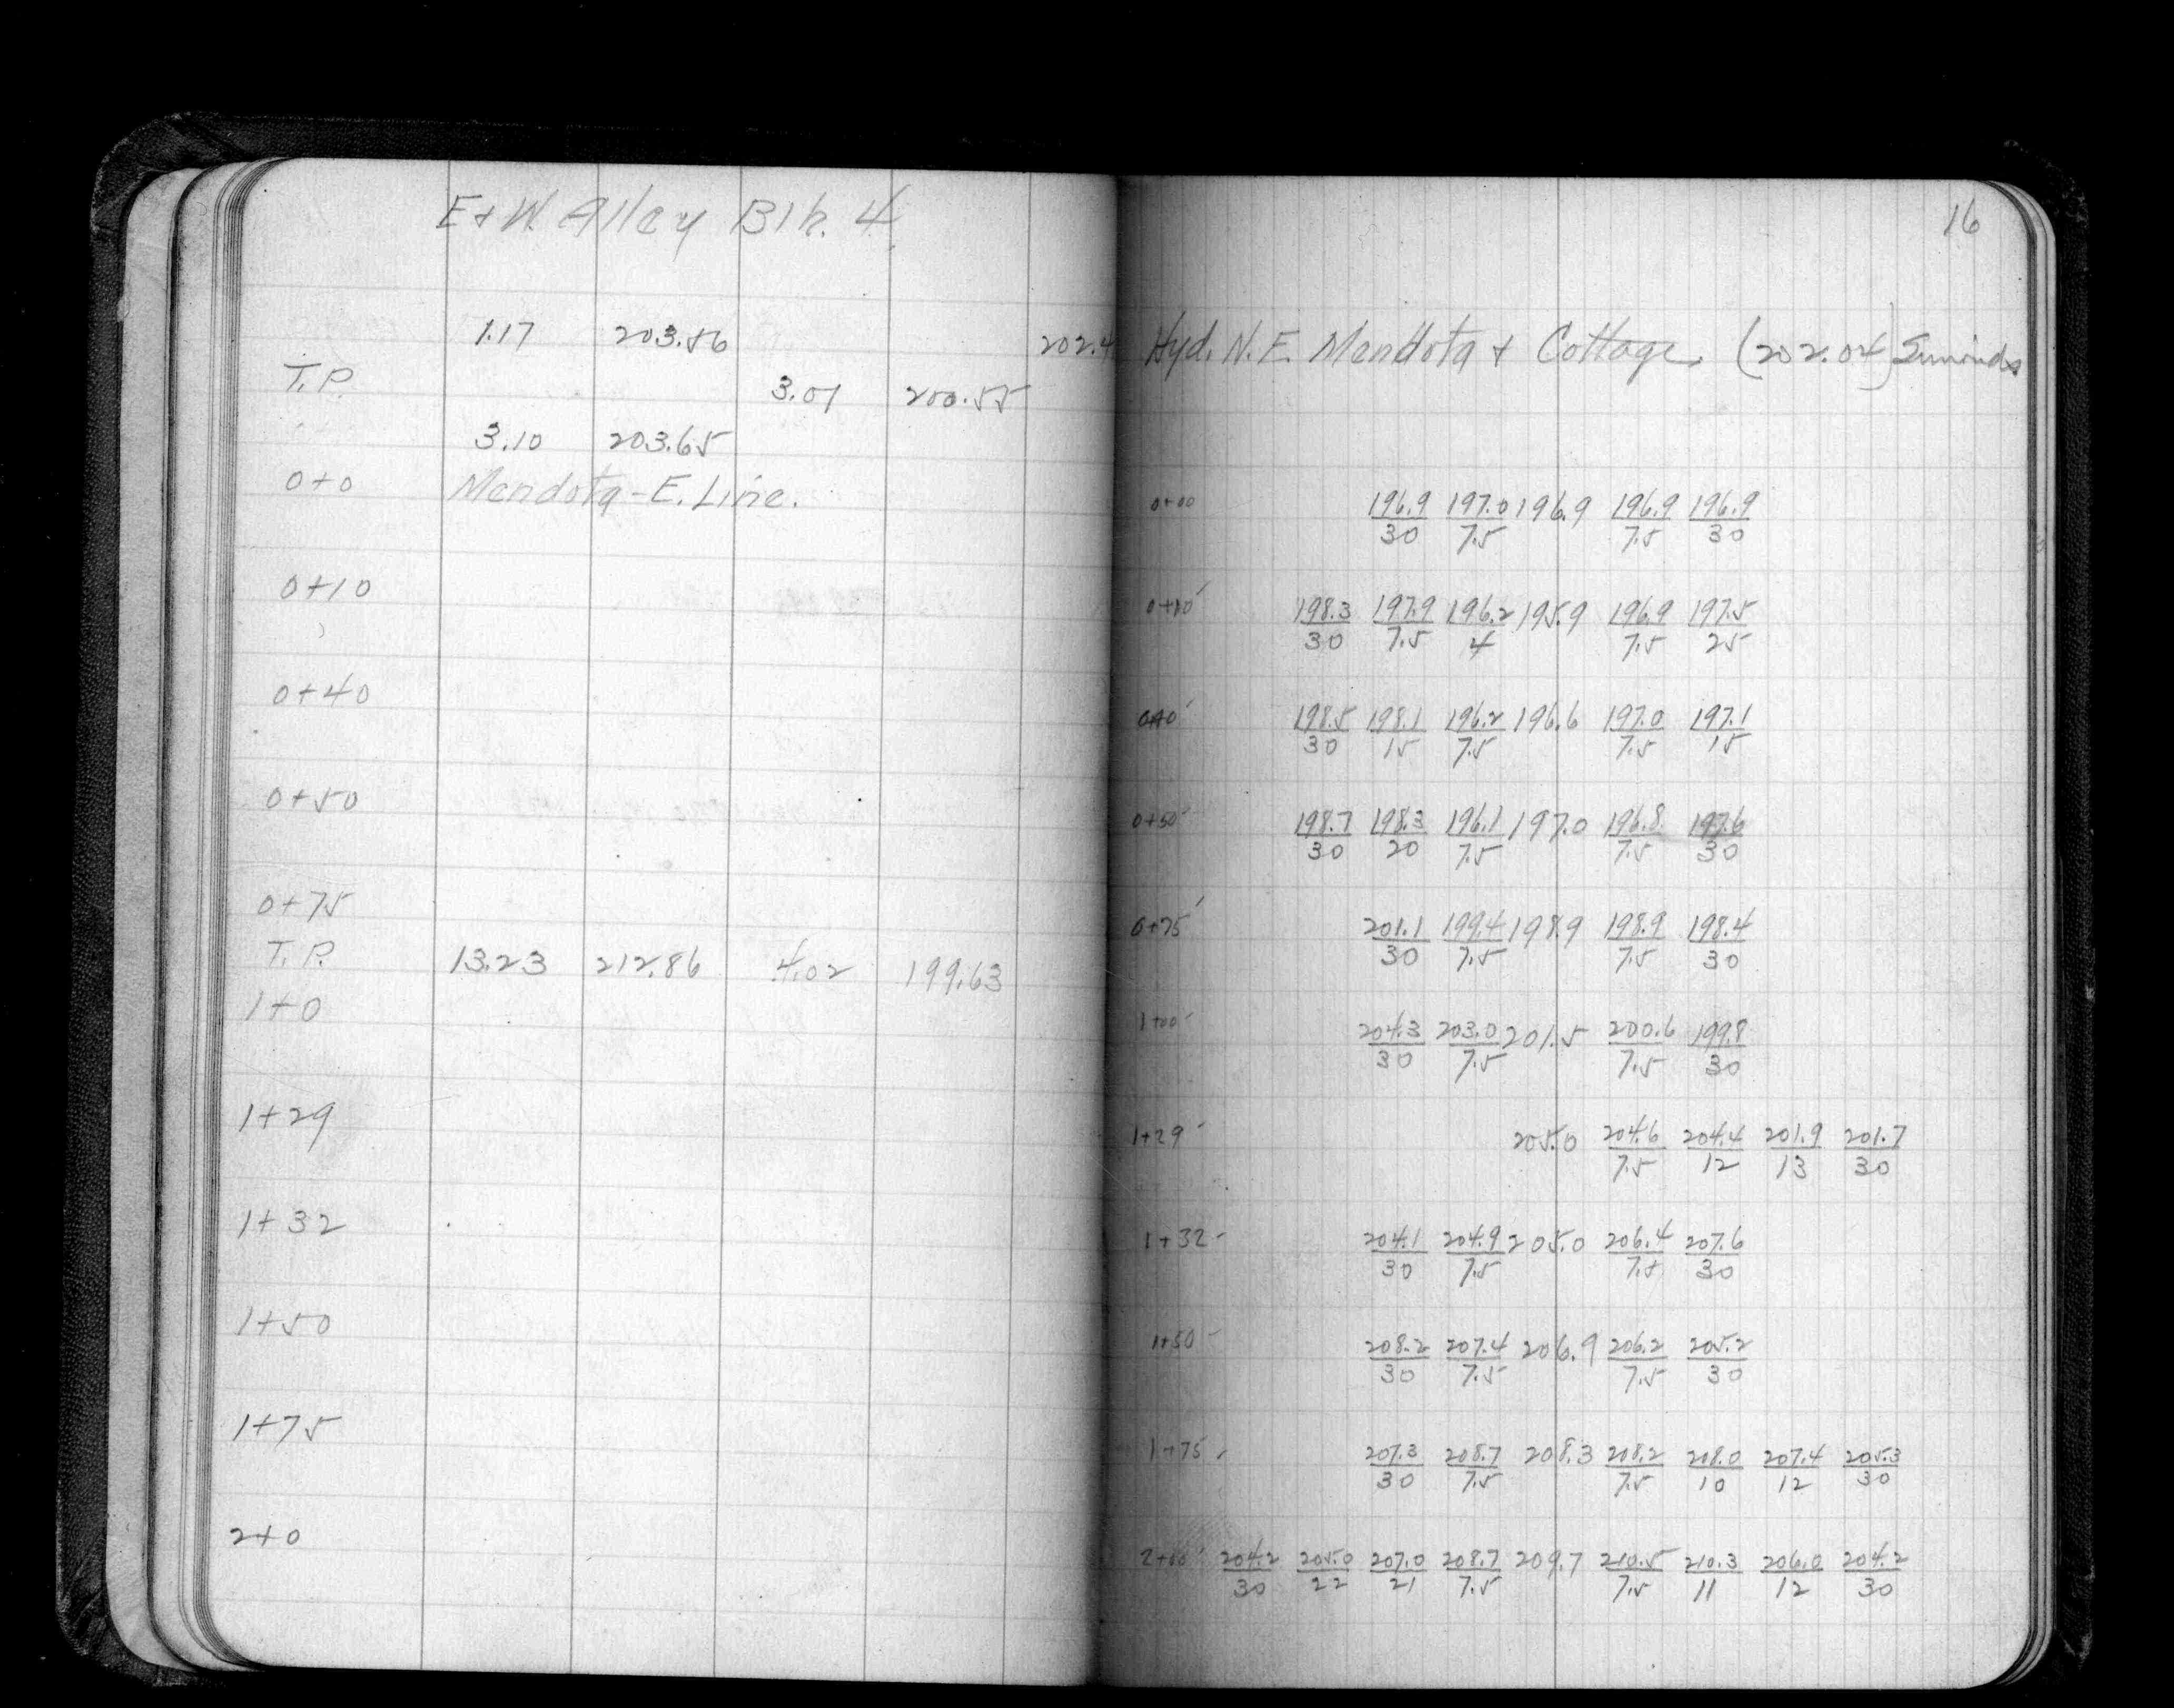 E & W. Alley Blk. 4.
1.17 203.56 202.4
T.P. 3.01 200.55
3.10 203.65
0+0 Mendota - E. Line.
0+10
0+40
0+50
0+75
T.P. 13.23 212.86 4.02 199.63
1+0
1+29
1+32
1+50
1+75
2+0
16
Hyd. N.E. Mendota & Cottage. (202.04)
0+00 196.9 197.0 196.9 196.9 196.9
30 7.5 7.5 30
0+10' 198.3 197.9 196.2 195.9 196.9 197.5
30 7.5 4 7.5 25
0+40' 198.5 198.1 196.2 196.6 197.0 197.1
30 15 7.5 7.5 15
0+50' 198.7 198.3 196.1 197.0 196.8 197.6
30 20 7.5 7.5 30
0+75' 201.1 199.4 198.9 198.9 198.4
30 7.5 7.5 30
1+00- 204.3 203.0 201.5 200.6 199.8
30 7.5 7.5 30
1+29- 205.0 204.6 204.4 201.9 201.7
7.5 12 13 30
1+32- 204.1 204.9 205.0 206.4 207.6
30 7.5 7.5 30
1+50- 208.2 207.4 206.9 206.2 205.2
30 7.5 7.5 30
1+75, 207.3 208.7 208.3 208.2 208.0 207.4 205.3
30 7.5 7.5 10 12 30
2+00' 204.2 205.0 207.0 208.7 209.7 210.5 210.3 206.0 204.2
30 22 21 7.5 7.5 11 12 30